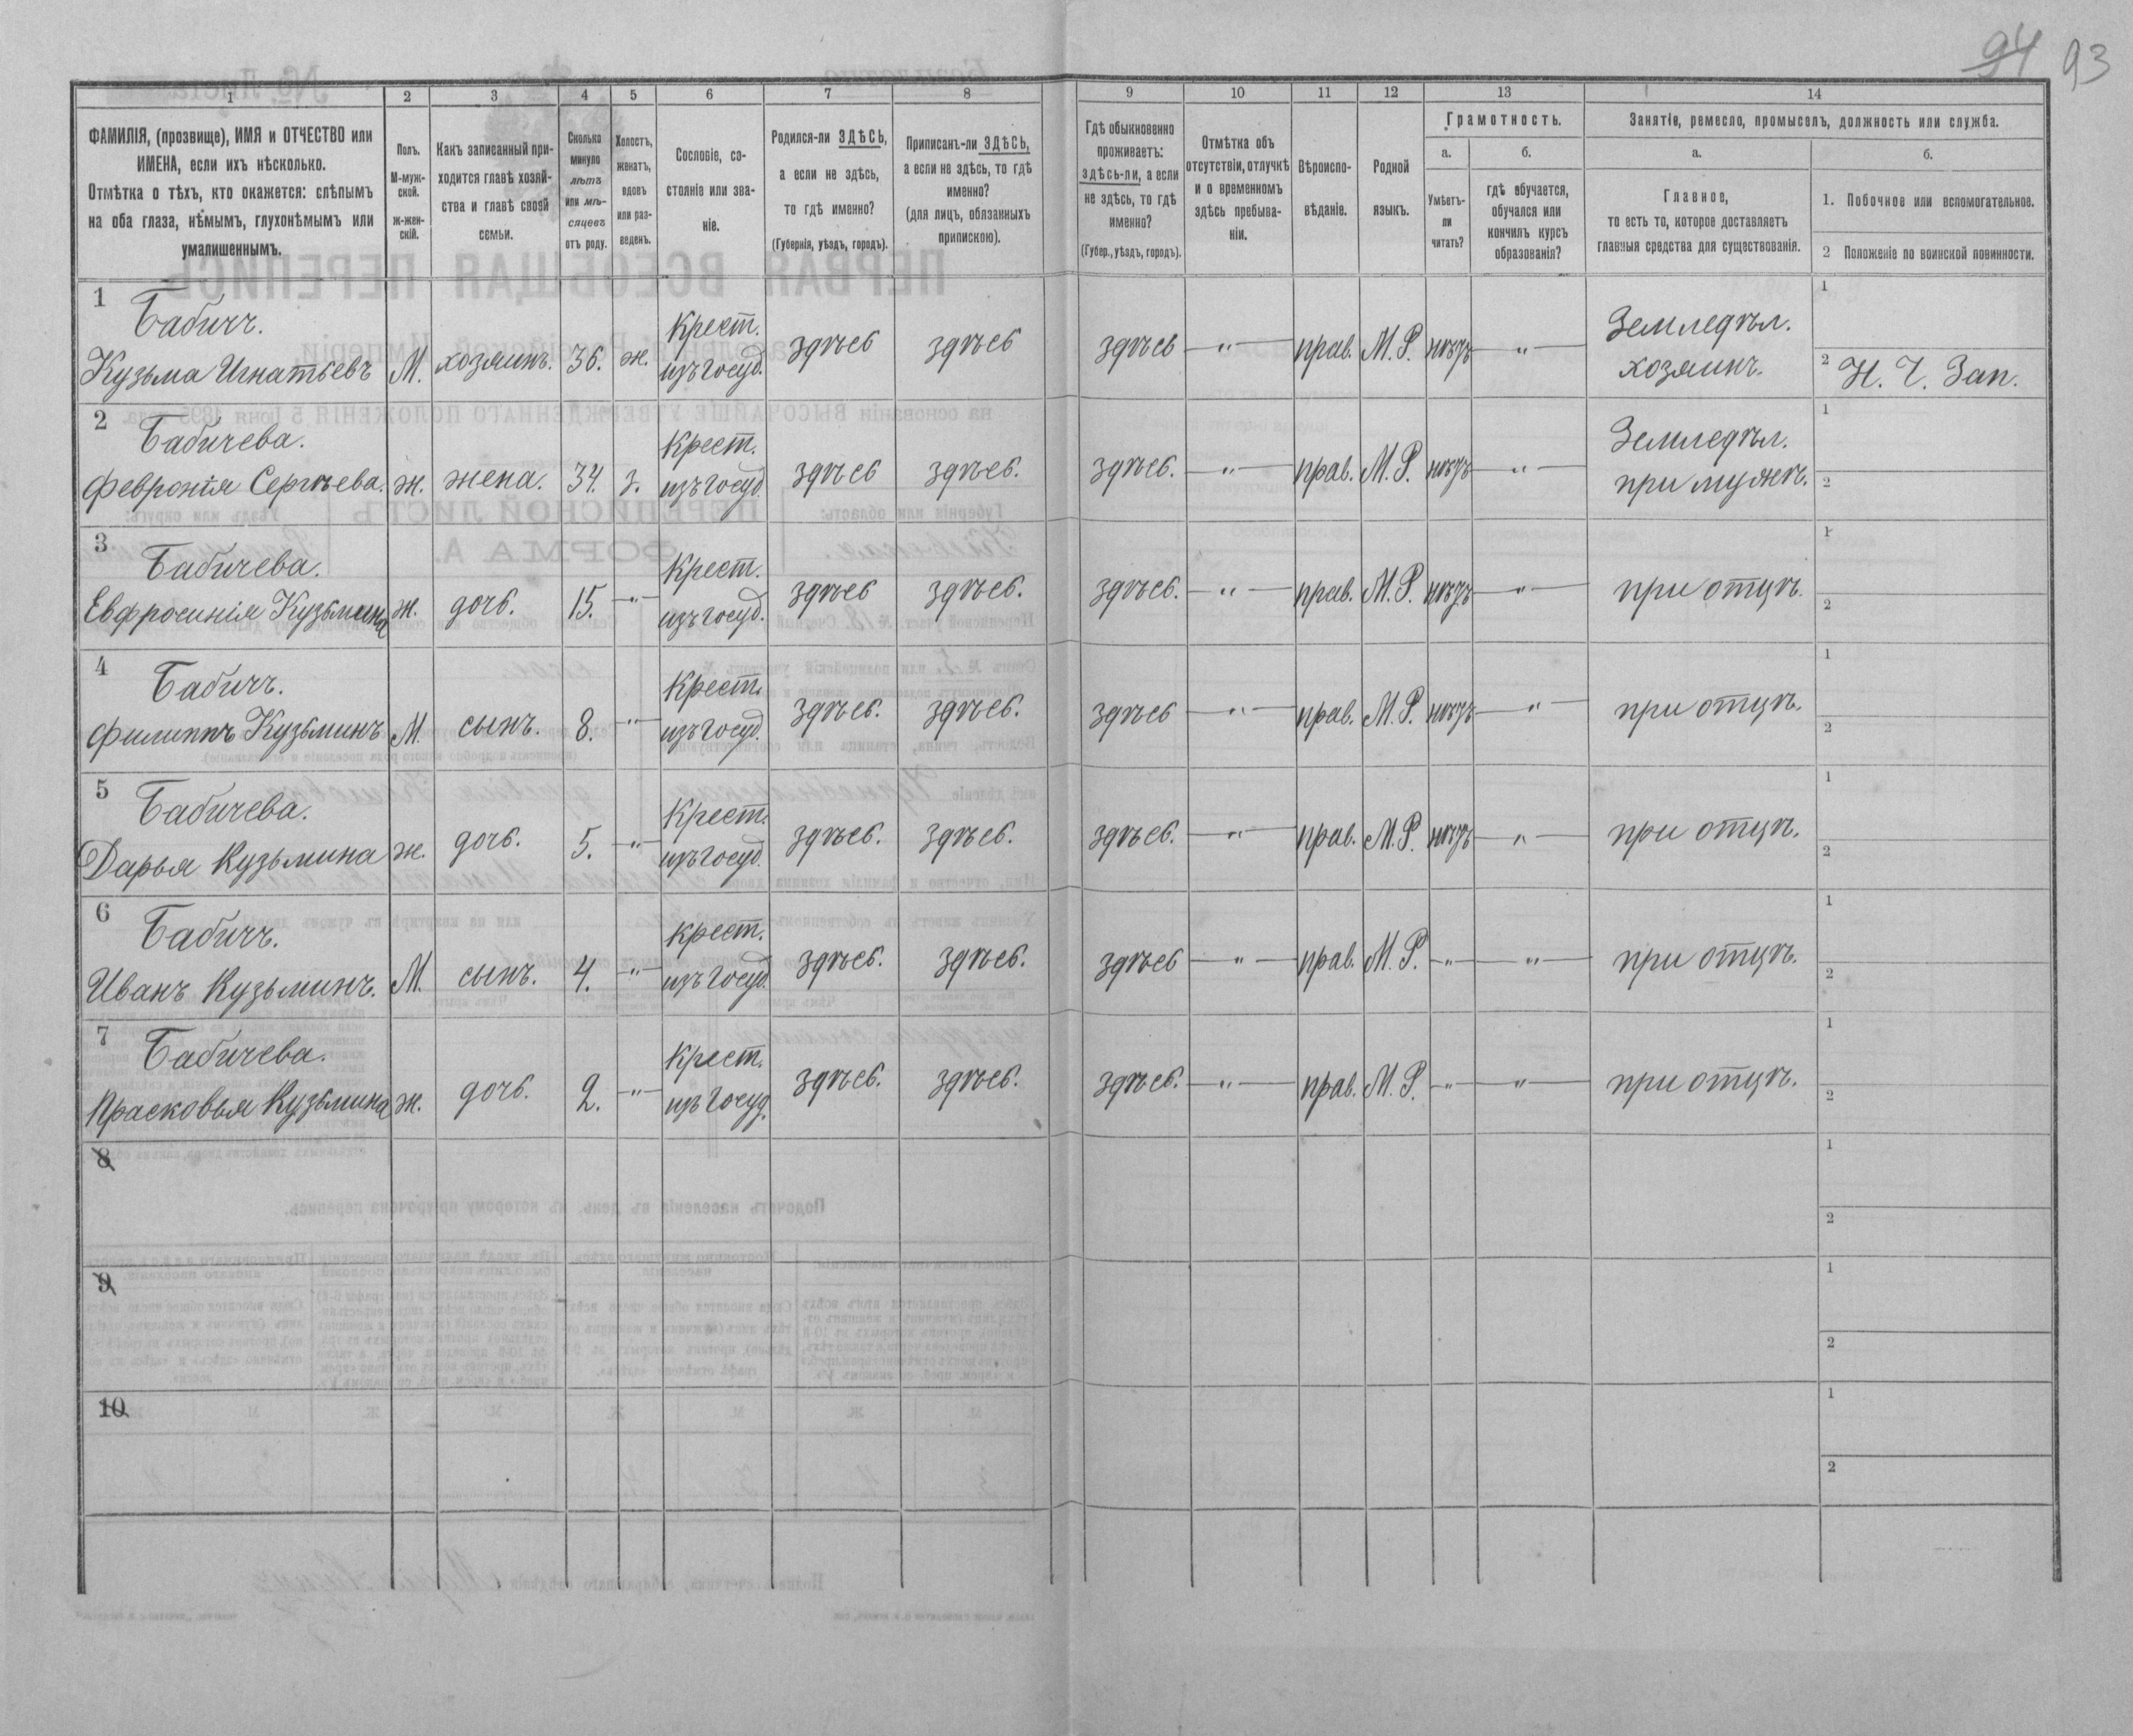 94 93
1 2 3 4 5 6 7 8 9 10 11 12 13 14
ФАМИЛІЯ, (прозвище), ИМЯ и ОТЧЕСТВО или
ИМЕНА, если ихъ нѣсколько.
Отмѣтка о тѣхъ, кто окажется: слѣпымъ
на оба глаза, нѣмымъ, глухонѣмымъ или
умалишеннымъ.
Полъ.
М-муж-
ской.
ж-жен-
скій.
Какъ записанный при-
ходится главѣ хозяй-
ства и главѣ своей
семьи.
Сколько
минуло
лѣтъ
или мѣ-
сяцевъ
отъ роду.
Холостъ,
женатъ,
вдовъ
или раз-
веденъ.
Сословіе, со-
стояніе или зва-
ніе.
Родился-ли ЗДѢСЬ,
а если не здѣсь,
то гдѣ именно?
(Губернія, уѣздъ, городъ).
Приписанъ-ли ЗДѢСЬ,
а если не здѣсь, то гдѣ
именно?
(для лицъ, обязанныхъ
припискою).
Гдѣ обыкновенно
проживаетъ:
здѣсь-ли, а если
не здѣсь, то гдѣ
именно?
(Губер., уѣздъ, городъ).
Отмѣтка объ
отсутствіи, отлучкѣ
и о временномъ
здѣсь пребыва-
ніи.
Вѣроиспо-
вѣданіе.
Родной
языкъ.
Грамотность.
а.
Умѣетъ-
ли
читать?
б.
гдѣ обучается,
обучался или
кончилъ курсъ
образованія?
Занятіе, ремесло, промыселъ, должность или служба.
а.
Главное,
то есть то, которое доставляетъ
главныя средства для существованія.
б.
1. Побочное или вспомогательное.
2 Положеніе по воинской повинности.
1
Бабичъ. Крест. Земледѣл. 1
Кузьма Игнатьевъ М. хозяинъ. 36. ж. изъ госуд. здѣсь здѣсь здѣсь — " — прав. М. Р. нѣтъ — " — хозяинъ. 2 Н. Ч. Зап.
2
Бабичева. Крест. Земледѣл. 1
Февронія Сергѣева. ж. жена. 34. з. изъ госуд. здѣсь здѣсь. здѣсь. — " — прав. М. Р. нѣтъ — " — при мужѣ. 2
3
Бабичева. Крест. 1
Евфросинія Кузьмина ж. дочь. 15. — " — изъ госуд. здѣсь здѣсь. здѣсь. — " — прав. М. Р. нѣтъ — " — при отцѣ. 2
4
Бабичъ. Крест. 1
Филиппъ Кузьминъ М. сынъ. 8. — " — изъ госуд. здѣсь. здѣсь. здѣсь — " — прав. М. Р. нѣтъ — " — при отцѣ. 2
5
Бабичева. Крест. 1
Дарья Кузьмина ж. дочь. 5. — " — изъ госуд. здѣсь. здѣсь. здѣсь. — " — прав. М. Р. нѣтъ — " — при отцѣ. 2
6
Бабичъ. Крест. 1
Иванъ Кузьминъ. М. сынъ. 4. — " — изъ госуд. здѣсь. здѣсь. здѣсь — " — прав. М. Р. — " — — " — при отцѣ. 2
7
Бабичева. Крест. 1
Прасковья Кузьмина ж. дочь. 2. — " — изъ госуд. здѣсь. здѣсь. здѣсь. — " — прав. М. Р. — " — — " — при отцѣ. 2
8 1
2
9 1
2
10 1
2